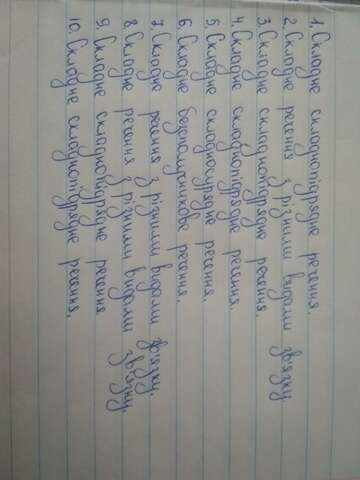 1. Складне складнопідрядне речення.
2. Складне речення з різними видами зв'язку.
3. Складне складнопідрядне речення.
4. Складне складнопідрядне речення.
5. Складне складносурядне речення.
6. Складне безполучникове речення.
7. Складне речення з різними видами зв'язку.
8. Складне речення з різними видами зв'язку
9. Складне складнопідрядне речення
10. Складне складнопідрядне речення.